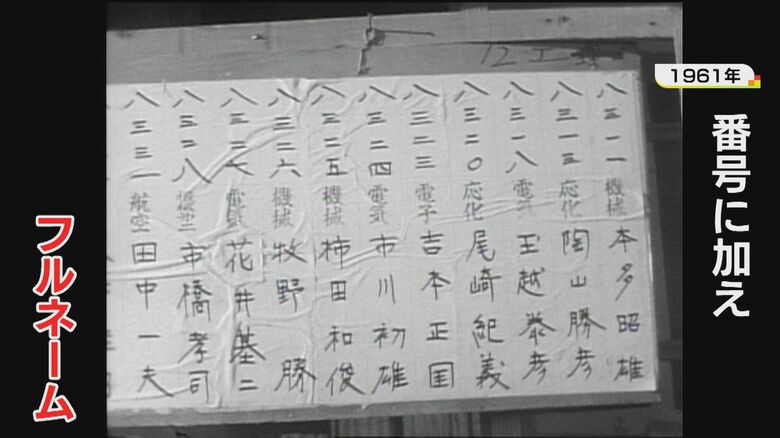 1961年
番号に加え
フルネーム
八三一一 機械 本多昭雄
八三一五 応化 陶山勝彦
八三一八 電気 玉越泰彦
八三二〇 応化 尾崎紀義
八三二三 電子 吉本正国
八三二四 電気 市川初雄
八三二五 機械 柿田和俊
八三二六 機械 牧野勝
八三二七 電気 花井基二
八三二八 航空 市橋孝司
八三三一 航空 田中一夫